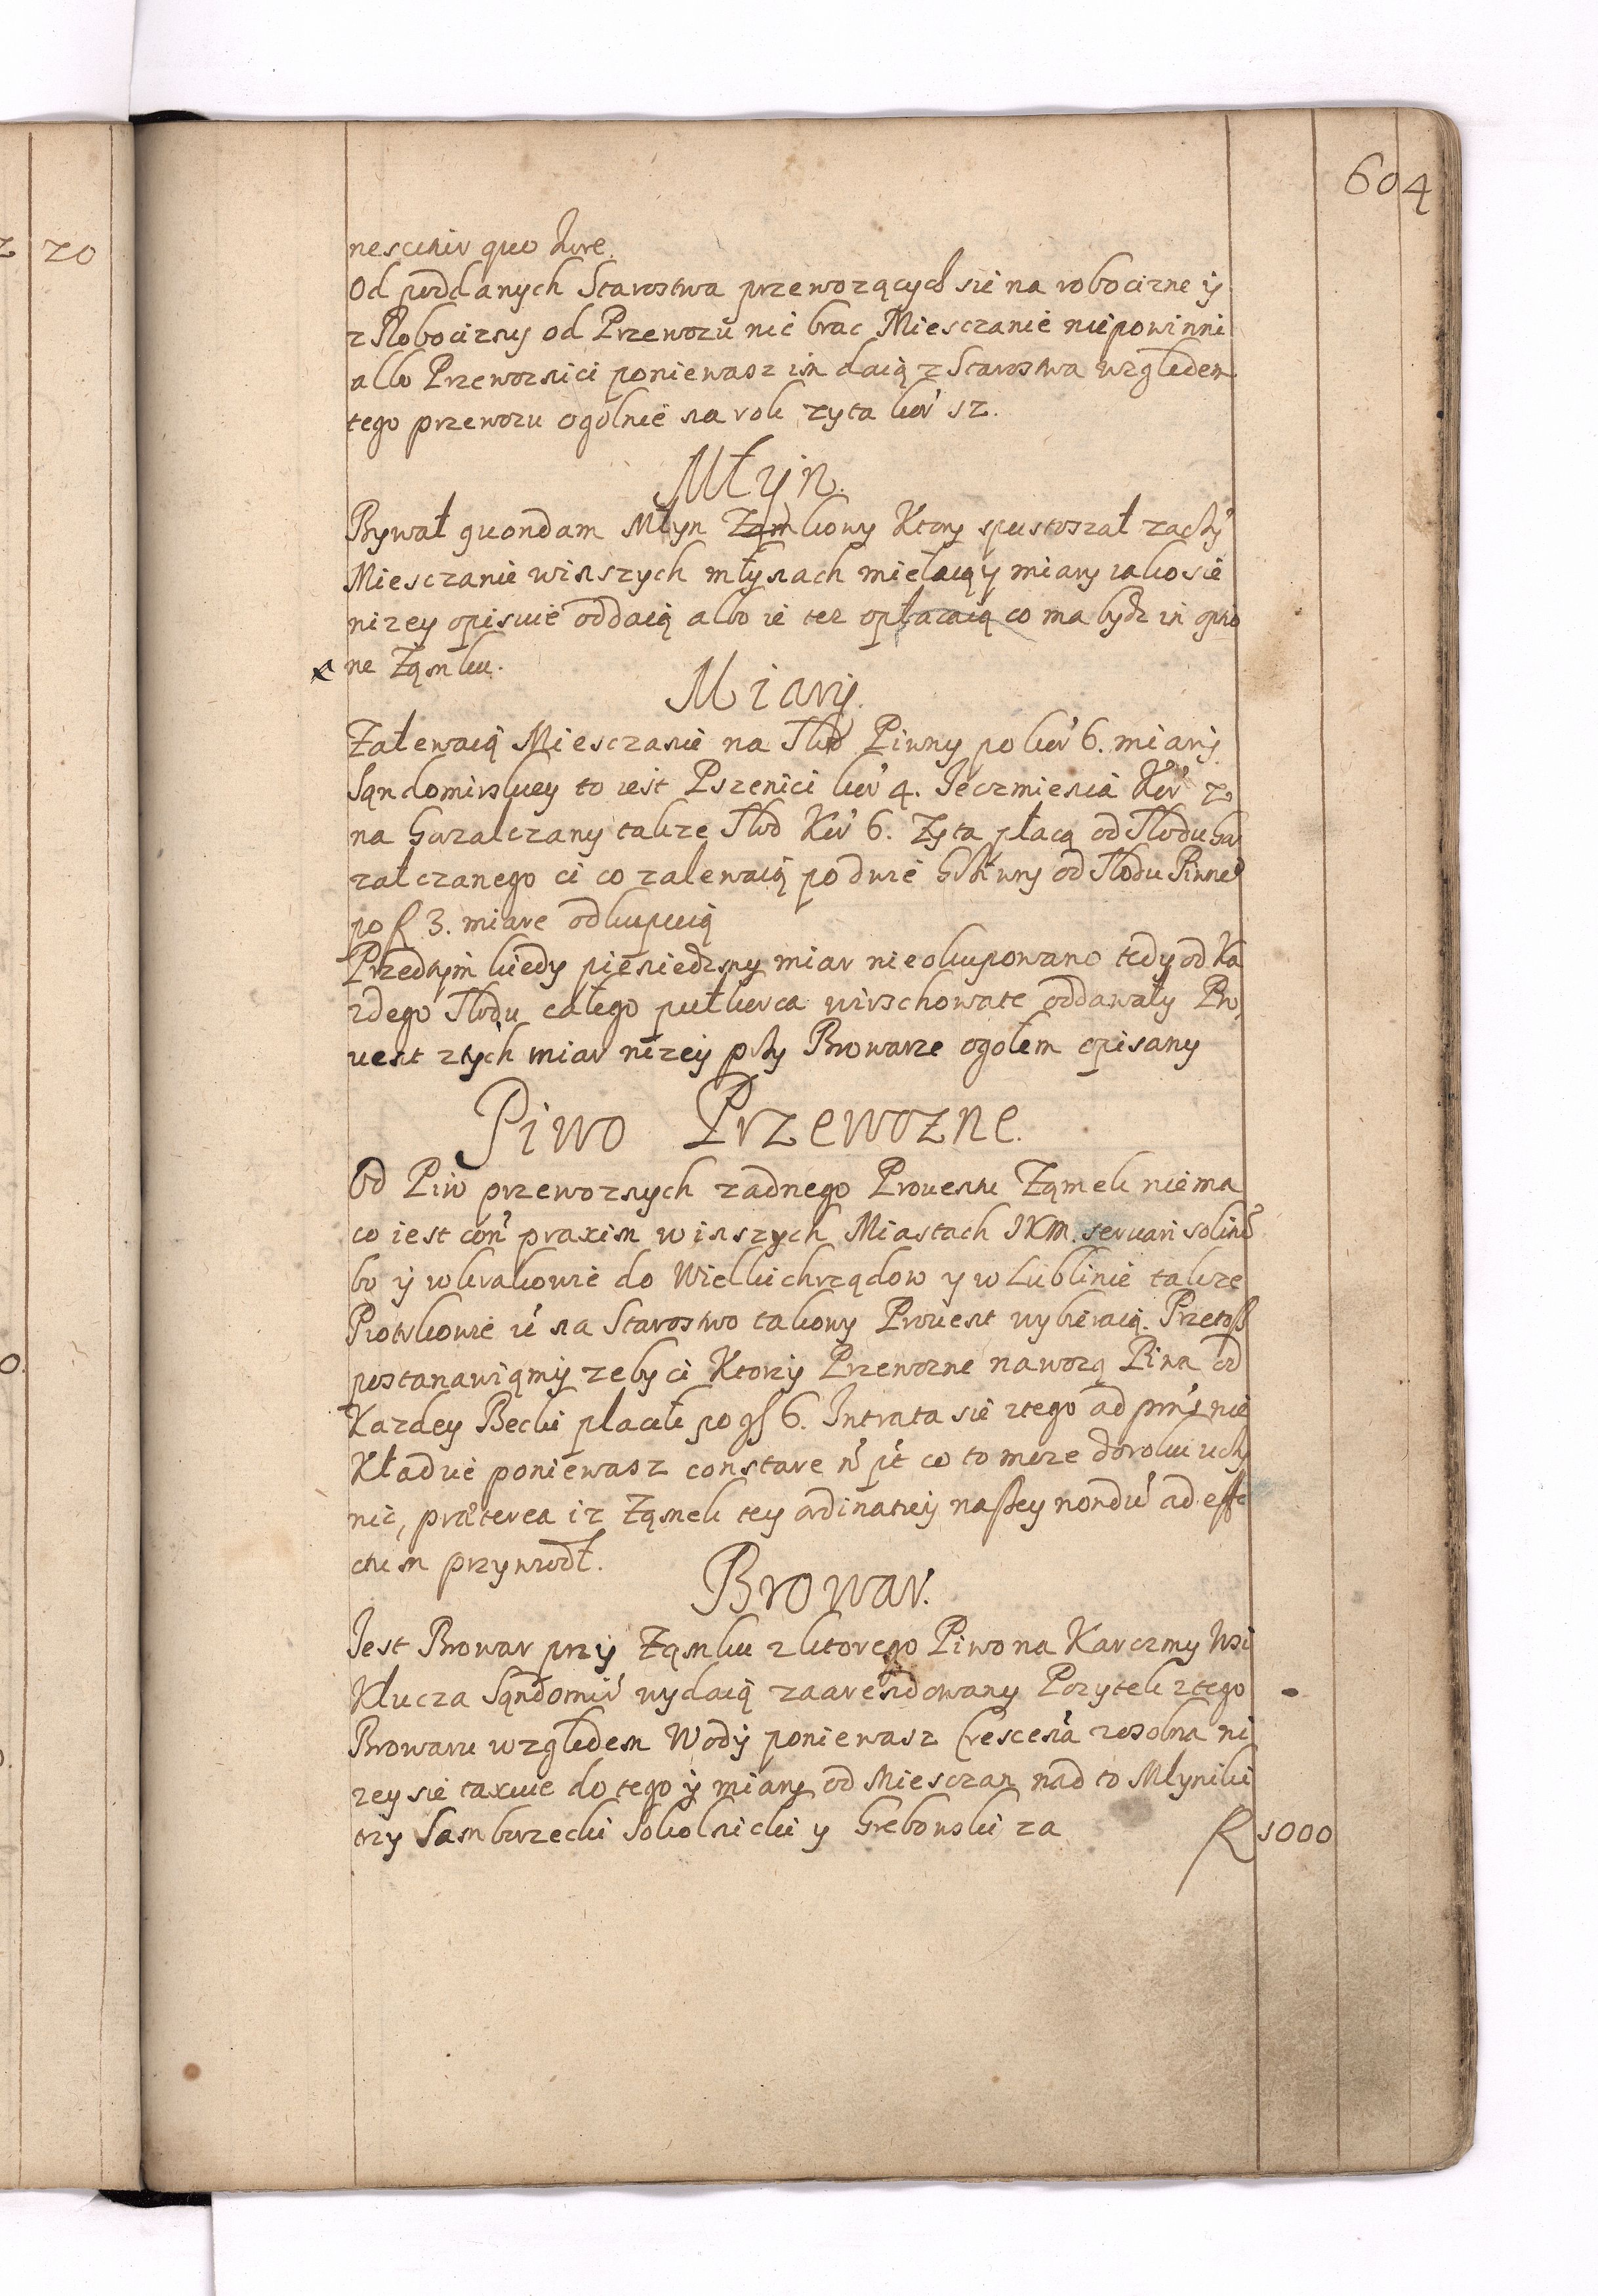 604
20
nesciuir quo Jure.
Od poddanych Starostwa przewozących sie na robocizne y
z Robocizny od Przewozu nic brac Miesczanie niepowinni
albo Przewoznici poniewasz im daią z Starostwa względem
tego przewozu ogolnie na rok zyta kor 12.
Młyn.
Bywał quondam Młyn Zamkowy Ktory spustoszał zaczy
Miesczanie winszych młynach mielaią y miary iako sie
nizey opisuie oddaią albo ie tez opłacaią co ma bydz in optio
ne Ząmku.
Miary.
Zalewaią Miesczanie na Słod Piwny po kor 6. miary
Sąndomirskiey to iest Pszenici kor 4. Jęczmienia Kor 2
na Gorzalczany takze Słod Kor 6. Zyta płacą od Słodu Go
rzałczanego ci co zalewaią po dwie Grzywny od Słodu Piwneo
po R 3. miare odkupuią
Przedtym kiedy pieniedzmy miar nieokupowano tedy od Ka
zdego Słodu całego pułkorca wirzchowate oddawały Pro
uent ztych miar nizey przy Browarze ogołem opisany
Piwo Przewozne.
Od Piw przewoznych zadnego Prouentu Ząmek niema
co iest con praxim winszych Miastach JKM. seruari solitu
bo y w Krakowie do Wielkichrządow y w Lublinie takze
Piotrkowie ii na Starostwo takowy Prouent wybieraią. Przetoß
postanawiąmy zeby ci Ktorzy Przewozne nawozą Piwa od
Kazdey Beczki placili po gß 6. Intrata sie ztego ad pns nie
Kładzie poniewasz constare n pt co to moze doroku uczy
nic, præterea iz Ząmek tey ordinatiy naßey nondu ad effe
ctum przywiodł.
Browar.
Jest Browar przy Ząmku z ktorego Piwo na Karczmy Wsi
Klucza Sąndomir wydaią zaarendowany Pozytek ztego
Browaru względem Wody poniewasz Crescena zosobna ni
zey sie taxuie do tego y miary od Miesczan nad to Młyniki
trzy Samborzecki Sokolnicki y Grebowski za R 1000